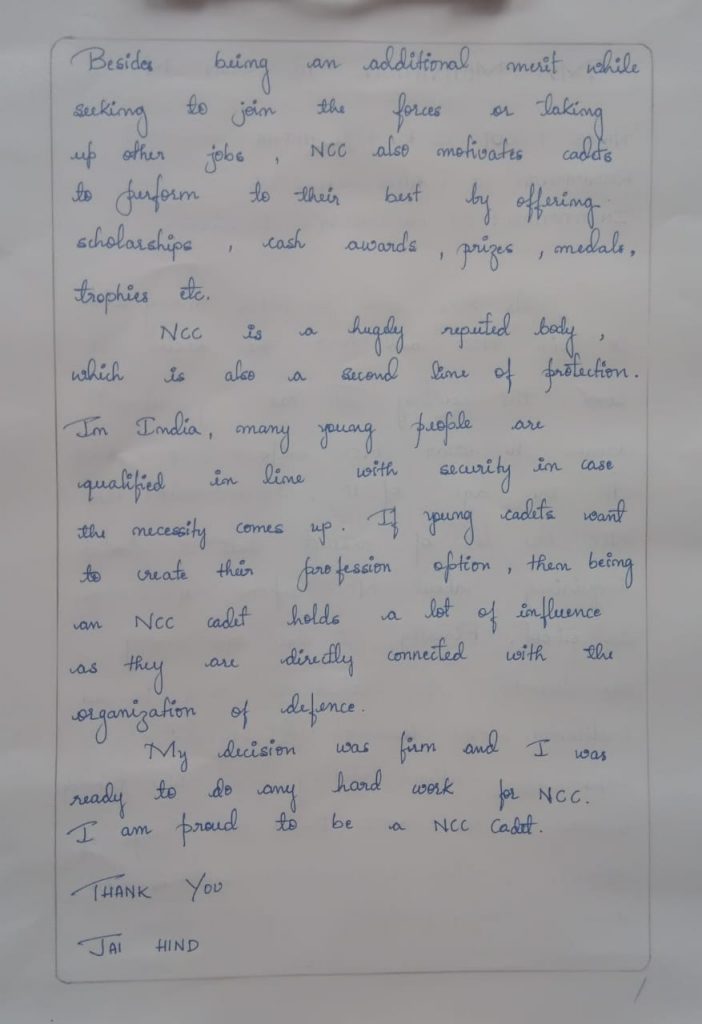 Besides being an additional merit while
seeking to join the forces or taking
up other jobs , NCC also motivates cadets
to perform to their best by offering
scholarships , cash awards , prizes , medals,
trophies etc.
NCC is a hugely reputed body ,
which is also a second line of protection.
In India, many young people are
qualified in line with security in case
the necessity comes up. If young cadets want
to create their profession option, then being
an NCC cadet holds a lot of influence
as they are directly connected with the
organization of defence.
My decision was firm and I was
ready to do any hard work for NCC.
I am proud to be a NCC Cadet.
THANK YOU
JAI HIND